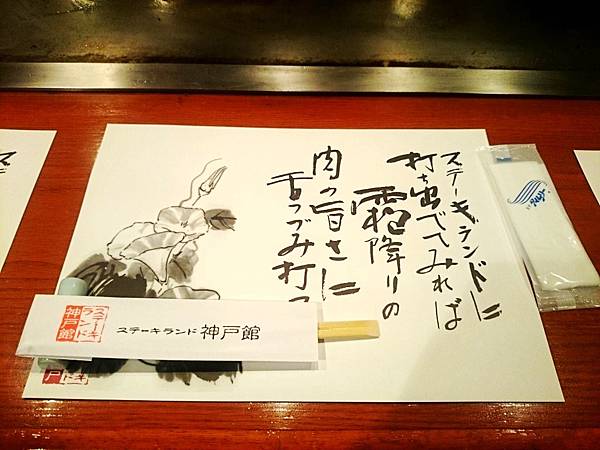 ステーキランドに
打ち出でてみれば
霜降りの
肉の旨さに
舌つづみ打つ
ステーキ
ランド
神戸館
ステーキランド 神戸館